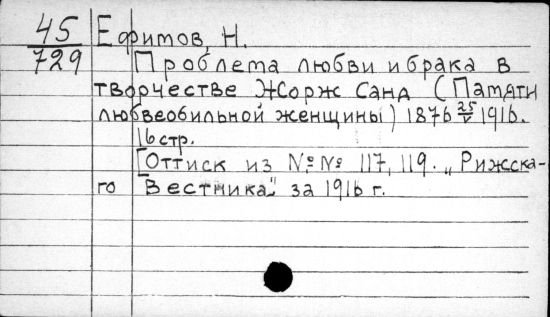 45 Ефимов, Н.
729 Проблема любви и брака в
творчестве Жорж Санд (Памяти
любвеобильной женщины) 1876 25/V 1916.
16 стр.
[Оттиск из №№ 117, 119. „Рижска-
го Вестника" за 1916 г.